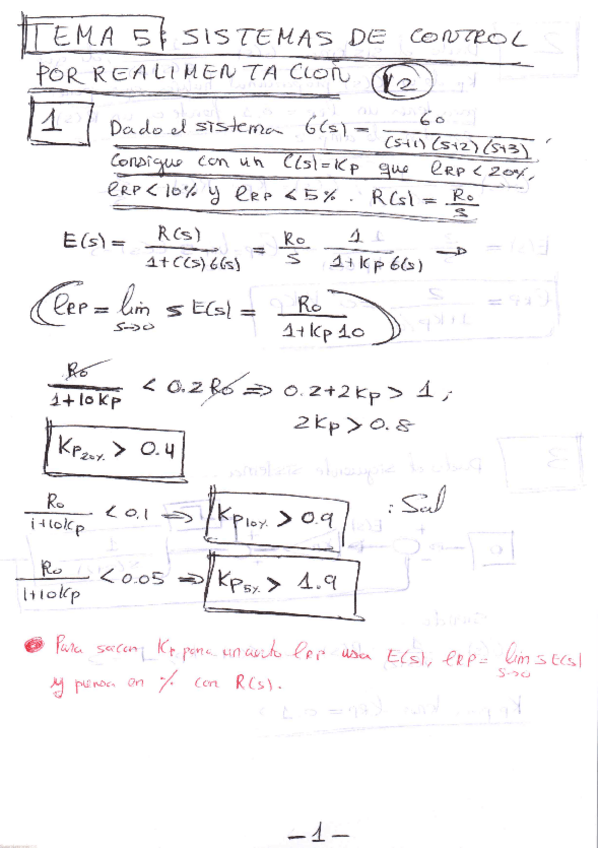 TEMA 5: SISTEMAS DE CONTROL
POR REALIMENTACION 12
1 Dado el sistema G(s) = 60 / (s+1)(s+2)(s+3).
Consigue con un C(s)=Kp que eRP < 20%,
eRP < 10% y eRP < 5%. R(s) = Ro/s
E(s) = R(s) / 1+C(s)G(s) = Ro/s 1 / 1+KpG(s) →
eRP = lim s→0 s E(s) = Ro / 1+Kp10
Ro / 1+10Kp < 0.2 Ro ⇒ 0.2+2Kp > 1;
2Kp > 0.8
Kp20% > 0.4
Ro / 1+10Kp < 0.1 ⇒ Kp10% > 0.9 : Sol
Ro / 1+10Kp < 0.05 ⇒ Kp5% > 1.9
Para sacar Kp para un cierto eRP usa E(s), eRP = lim s→0 s E(s)
y piensa en % con R(s).
-1-